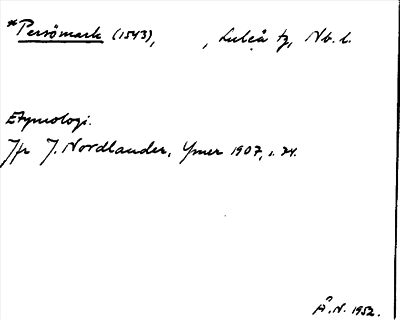 *Persömark (1543), , Luleå tg, Nb. l.
Etymologi.
Jfr J. Nordlander, Ymer 1907, s. 74.
Å.N. 1952.